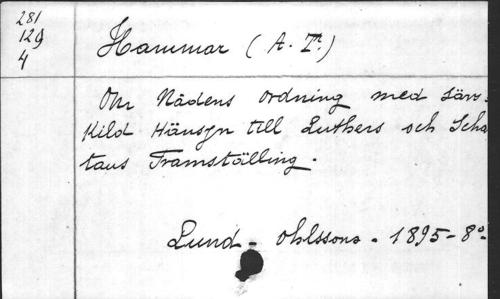 281
129
4
Hammar (A. T.)
Om Nådens ordning med sär-
skild Hänsyn till Luthers och Scha
taus Framställing.
Lund - Ohlssons. 1895 - 8°